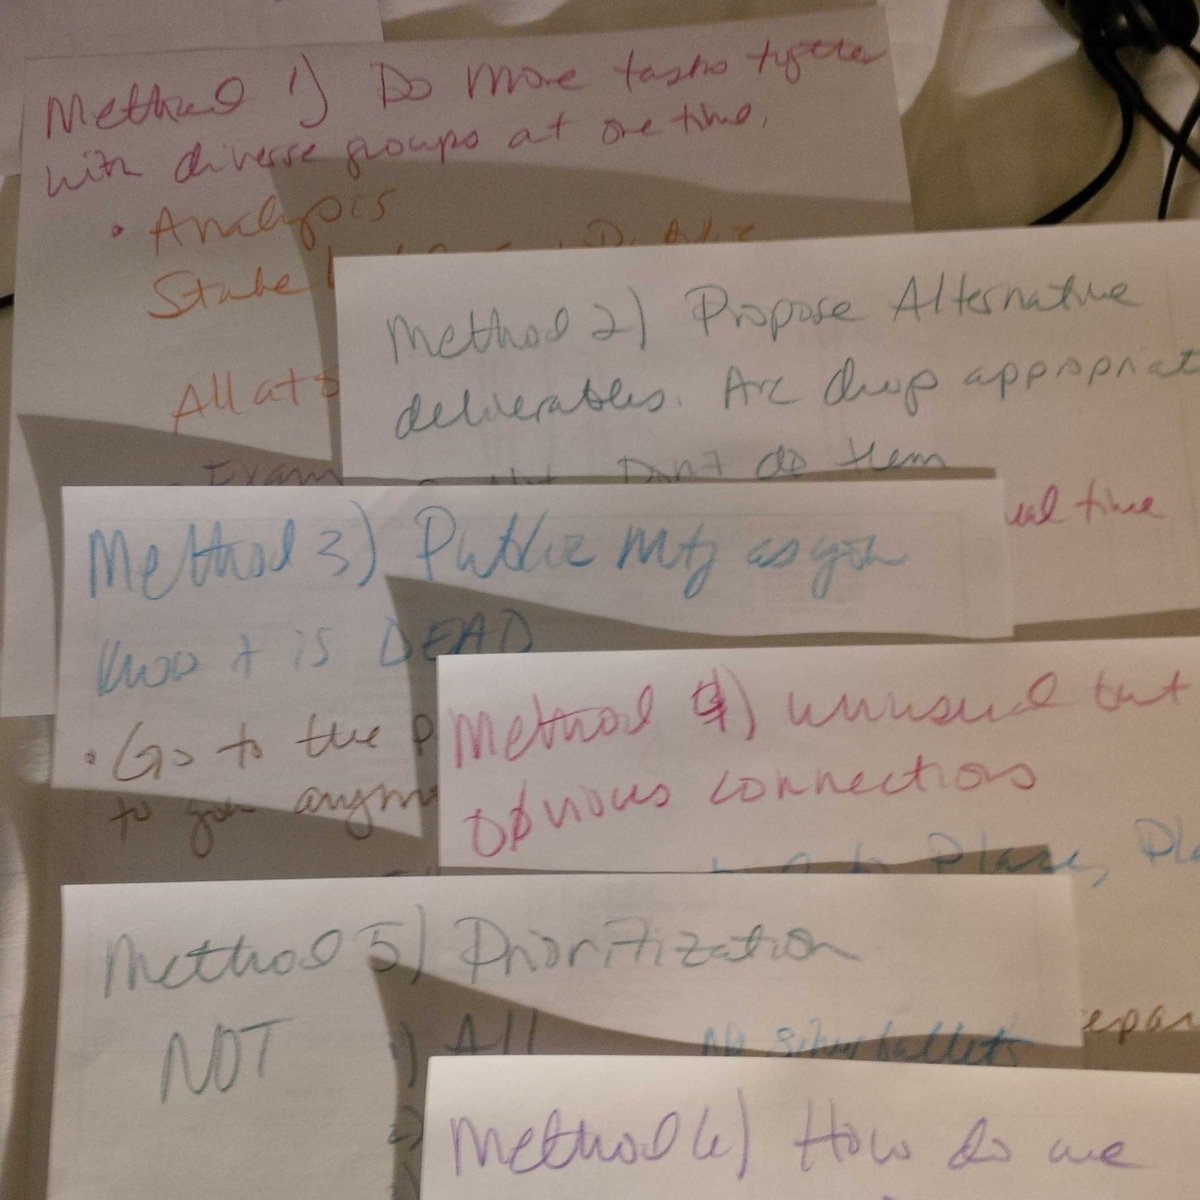 Method 1) Do more tasks together
with diverse groups at one time,
• Analysis
Stake
All at
Exam
Method 2) Propose Alternative
deliverables. Arc drop appropriat
Don't do them
real time
Method 3) Public Mtg as you
know it is DEAD
• Go to the p
to you anymo
Method 4) unusual but
obvious connections
Place, Pla
Method 5) Prioritization
NOT
1) All
No Silver bullets
2)
epar
Method 6) How do we